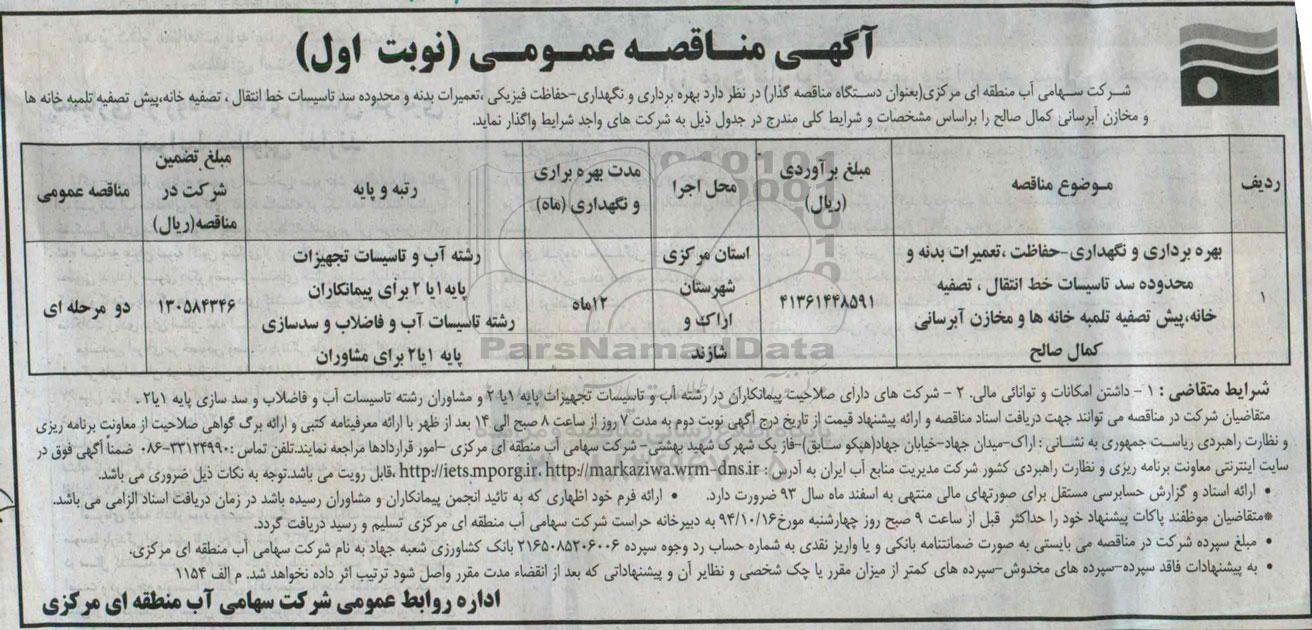 آگهی مناقصه عمومی (نوبت اول)
شرکت سهامی آب منطقه ای مرکزی(بعنوان دستگاه مناقصه گذار) در نظر دارد بهره برداری و نگهداری-حفاظت فیزیکی ،تعمیرات بدنه و محدوده سد تاسیسات خط انتقال ، تصفیه خانه،پیش تصفیه تلمبه خانه ها
و مخازن آبرسانی کمال صالح را براساس مشخصات و شرایط کلی مندرج در جدول ذیل به شرکت های واجد شرایط واگذار نماید.
ردیف
موضوع مناقصه
مبلغ برآوردی
(ریال)
محل اجرا
مدت بهره براری
و نگهداری (ماه)
رتبه و پایه
مبلغ تضمین
شرکت در
مناقصه(ریال)
مناقصه عمومی
۱
بهره برداری و نگهداری-حفاظت ،تعمیرات بدنه و
محدوده سد تاسیسات خط انتقال ، تصفیه
خانه،پیش تصفیه تلمبه خانه ها و مخازن آبرسانی
کمال صالح
۴۱۳۶۱۴۴۸۵۹۱
استان مرکزی
شهرستان
اراک و
شازند
۱۲ماه
رشته آب و تاسیسات تجهیزات
پایه۱یا ۲ برای پیمانکاران
رشته تاسیسات آب و فاضلاب و سدسازی
پایه ۱یا۲ برای مشاوران
۱۳۰۵۸۴۳۴۶
دو مرحله ای
ParsNamadData
شرایط متقاضی : ۱ - داشتن امکانات و توانائی مالی. ۲ - شرکت های دارای صلاحیت پیمانکاران در رشته آب و تاسیسات تجهیزات پایه ۱یا ۲ و مشاوران رشته تاسیسات آب و فاضلاب و سد سازی پایه ۱یا۲ .
متقاضیان شرکت در مناقصه می توانند جهت دریافت اسناد مناقصه و ارائه پیشنهاد قیمت از تاریخ درج آگهی نوبت دوم به مدت ۷ روز از ساعت ۸ صبح الی ۱۴ بعد از ظهر با ارائه معرفینامه کتبی و ارائه برگ گواهی صلاحیت از معاونت برنامه ریزی
و نظارت راهبردی ریاست جمهوری به نشانی : اراک-میدان جهاد-خیابان جهاد(هپکو سابق)-فاز یک شهرک شهید بهشتی- شرکت سهامی آب منطقه ای مرکزی -امور قراردادها مراجعه نمایند.تلفن تماس :۳۳۱۲۴۹۹۰-۰۸۶ ضمناً آگهی فوق در
سایت اینترنتی معاونت برنامه ریزی و نظارت راهبردی کشور شرکت مدیریت منابع آب ایران به آدرس : http://iets.mporg.ir. http://markaziwa.wrm-dns.ir ،قابل رویت می باشد.توجه به نکات ذیل ضروری می باشد.
• ارائه اسناد و گزارش حسابرسی مستقل برای صورتهای مالی منتهی به اسفند ماه سال ۹۳ ضرورت دارد. • ارائه فرم خود اظهاری که به تائید انجمن پیمانکاران و مشاوران رسیده باشد در زمان دریافت اسناد الزامی می باشد.
*متقاضیان موظفند پاکات پیشنهاد خود را حداکثر قبل از ساعت ۹ صبح روز چهارشنبه مورخ۹۴/۱۰/۱۶ به دبیرخانه حراست شرکت سهامی آب منطقه ای مرکزی تسلیم و رسید دریافت گردد.
• مبلغ سپرده شرکت در مناقصه می بایستی به صورت ضمانتنامه بانکی و یا واریز نقدی به شماره حساب رد وجوه سپرده ۲۱۶۵۰۸۵۲۰۶۰۰۶ بانک کشاورزی شعبه جهاد به نام شرکت سهامی آب منطقه ای مرکزی.
• به پیشنهادات فاقد سپرده-سپرده های مخدوش-سپرده های کمتر از میزان مقرر یا چک شخصی و نظایر آن و پیشنهاداتی که بعد از انقضاء مدت مقرر واصل شود ترتیب اثر داده نخواهد شد. م الف ۱۱۵۴
اداره روابط عمومی شرکت سهامی آب منطقه ای مرکزی